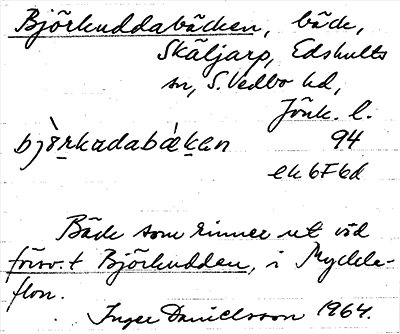 Björkuddabäcken, bäck,
Skäljarp, Edshults
sn, S. Vedbo hd,
Jönk. l.
bjö̀rkadabákan 94
ek 6F6d
Bäck som rinner ut vid
försv.t Björkudden, i Myckle-
flon.
Inger Danielsson 1964.